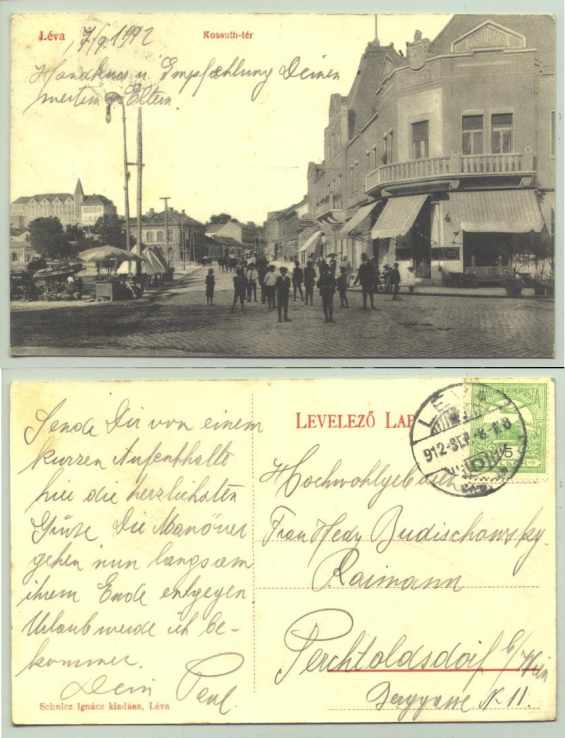 Léva 17/9. 1912
Kossuth-tér
Handkuss u. Empfehlung Deinen
werten Eltern.
LEVELEZŐ LAP
Sende Dir von einem
kurzen Aufenthalte
hier die herzlichsten
Grüße. Die Manöver
gehen nun langsam
ihrem Ende entgegen
Urlaub werde ich be-
kommen.
Dein Paul
Schulcz Ignácz kiadása, Léva
LÉVA
912 SEP
Hochwohlgeboren
Frau Hedy Budischowsky-
Raimann
Perchtoldsdorf b/Wien
N 11.